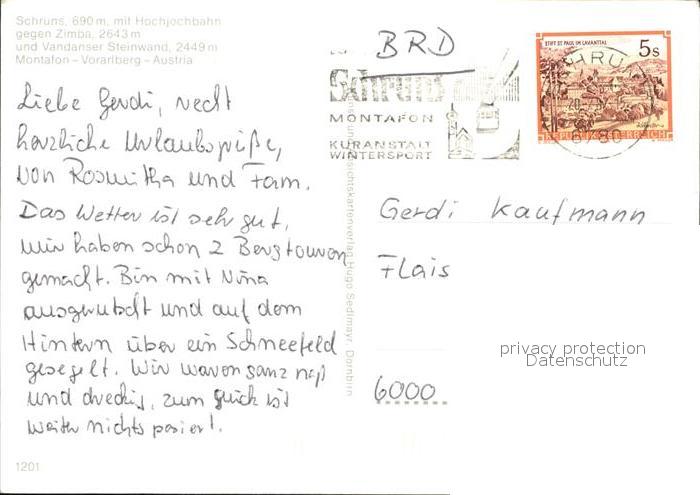 Schruns, 690 m, mit Hochjochbahn
gegen Zimba, 2643 m
und Vandanser Steinwand, 2449 m
Montafon – Vorarlberg – Austria
Liebe Gerdi, recht
herzliche Urlaubsgrüße,
von Roswitha und Fam.
Das Wetter ist sehr gut,
wir haben schon 2 Bergtouren
gemacht. Bin mit Nina
ausgerutscht und auf dem
Hintern über ein Schneefeld
gesegelt. Wir waren ganz naß
und dreckig, zum Glück ist
weiter nichts passiert.
1201
Ansichtskartenverlag Hugo Sedlmayr, Dornbirn
BRD
Schruns
MONTAFON
KURANSTALT
WINTERSPORT
STIFT ST. PAUL IM LAVANTTAL
5s
REPUBLIK ÖSTERREICH
SCHRUNS
6780
Gerdi Kaufmann
Flais
privacy protection
Datenschutz
6000